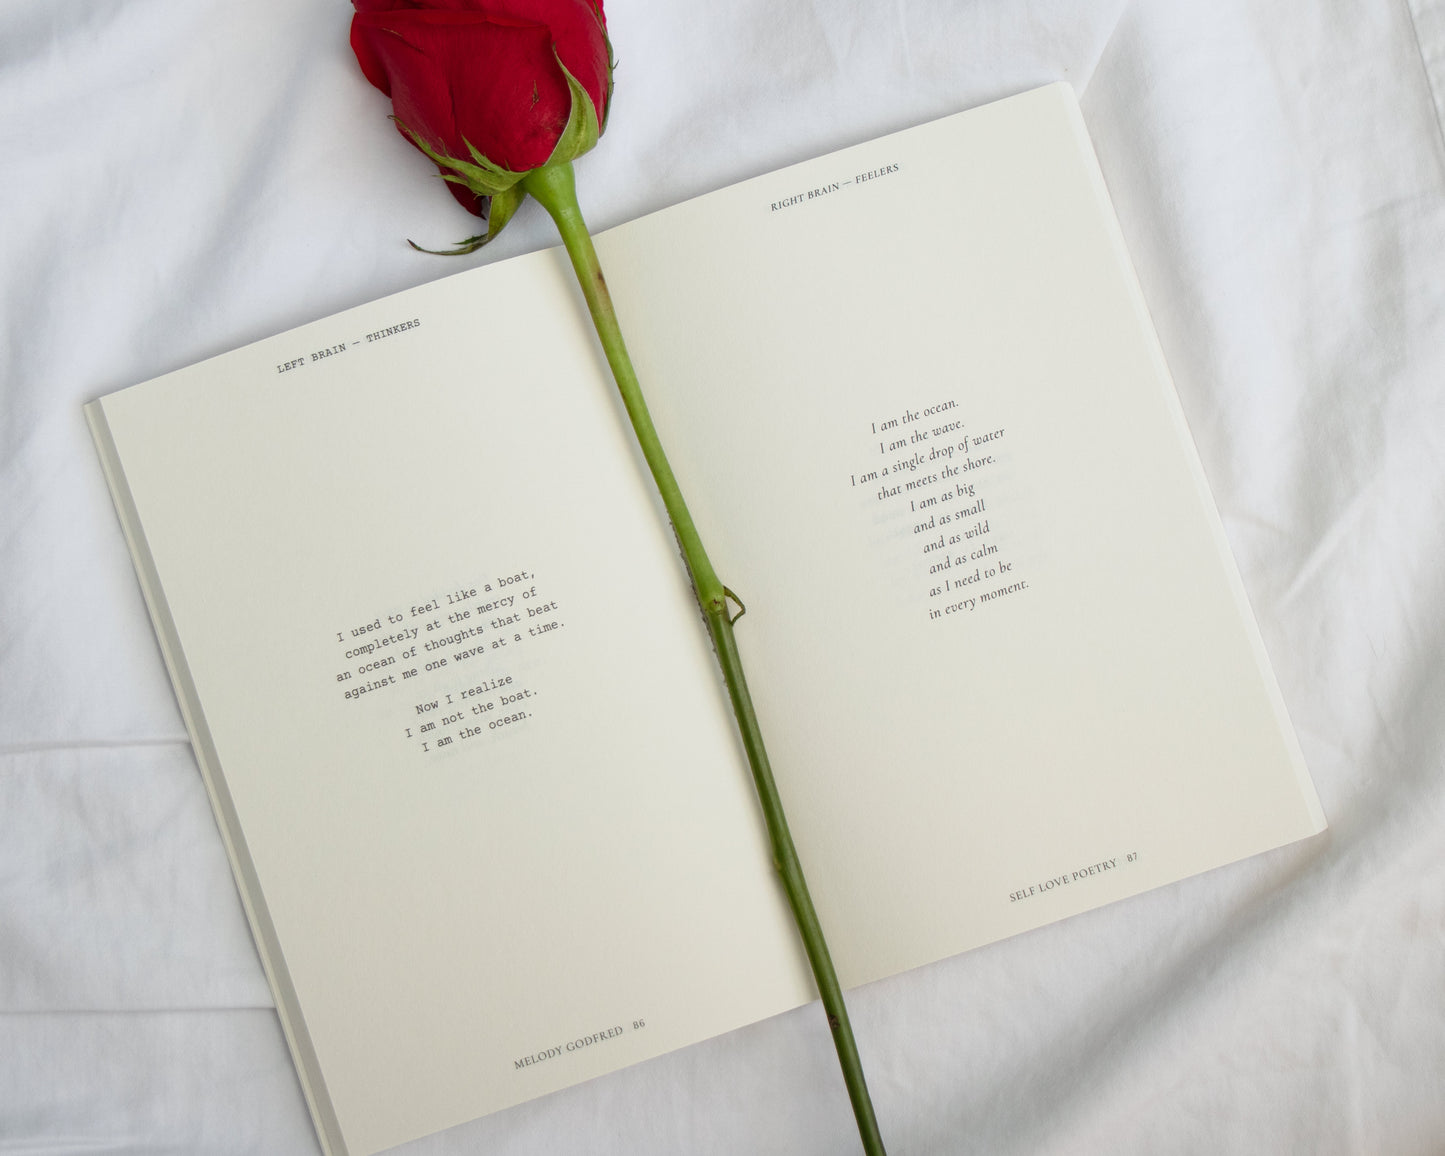 LEFT BRAIN — THINKERS
I used to feel like a boat,
completely at the mercy of
an ocean of thoughts that beat
against me one wave at a time.
Now I realize
I am not the boat.
I am the ocean.
MELODY GODFRED 86
RIGHT BRAIN — FEELERS
I am the ocean.
I am the wave.
I am a single drop of water
that meets the shore.
I am as big
and as small
and as wild
and as calm
as I need to be
in every moment.
SELF LOVE POETRY 87